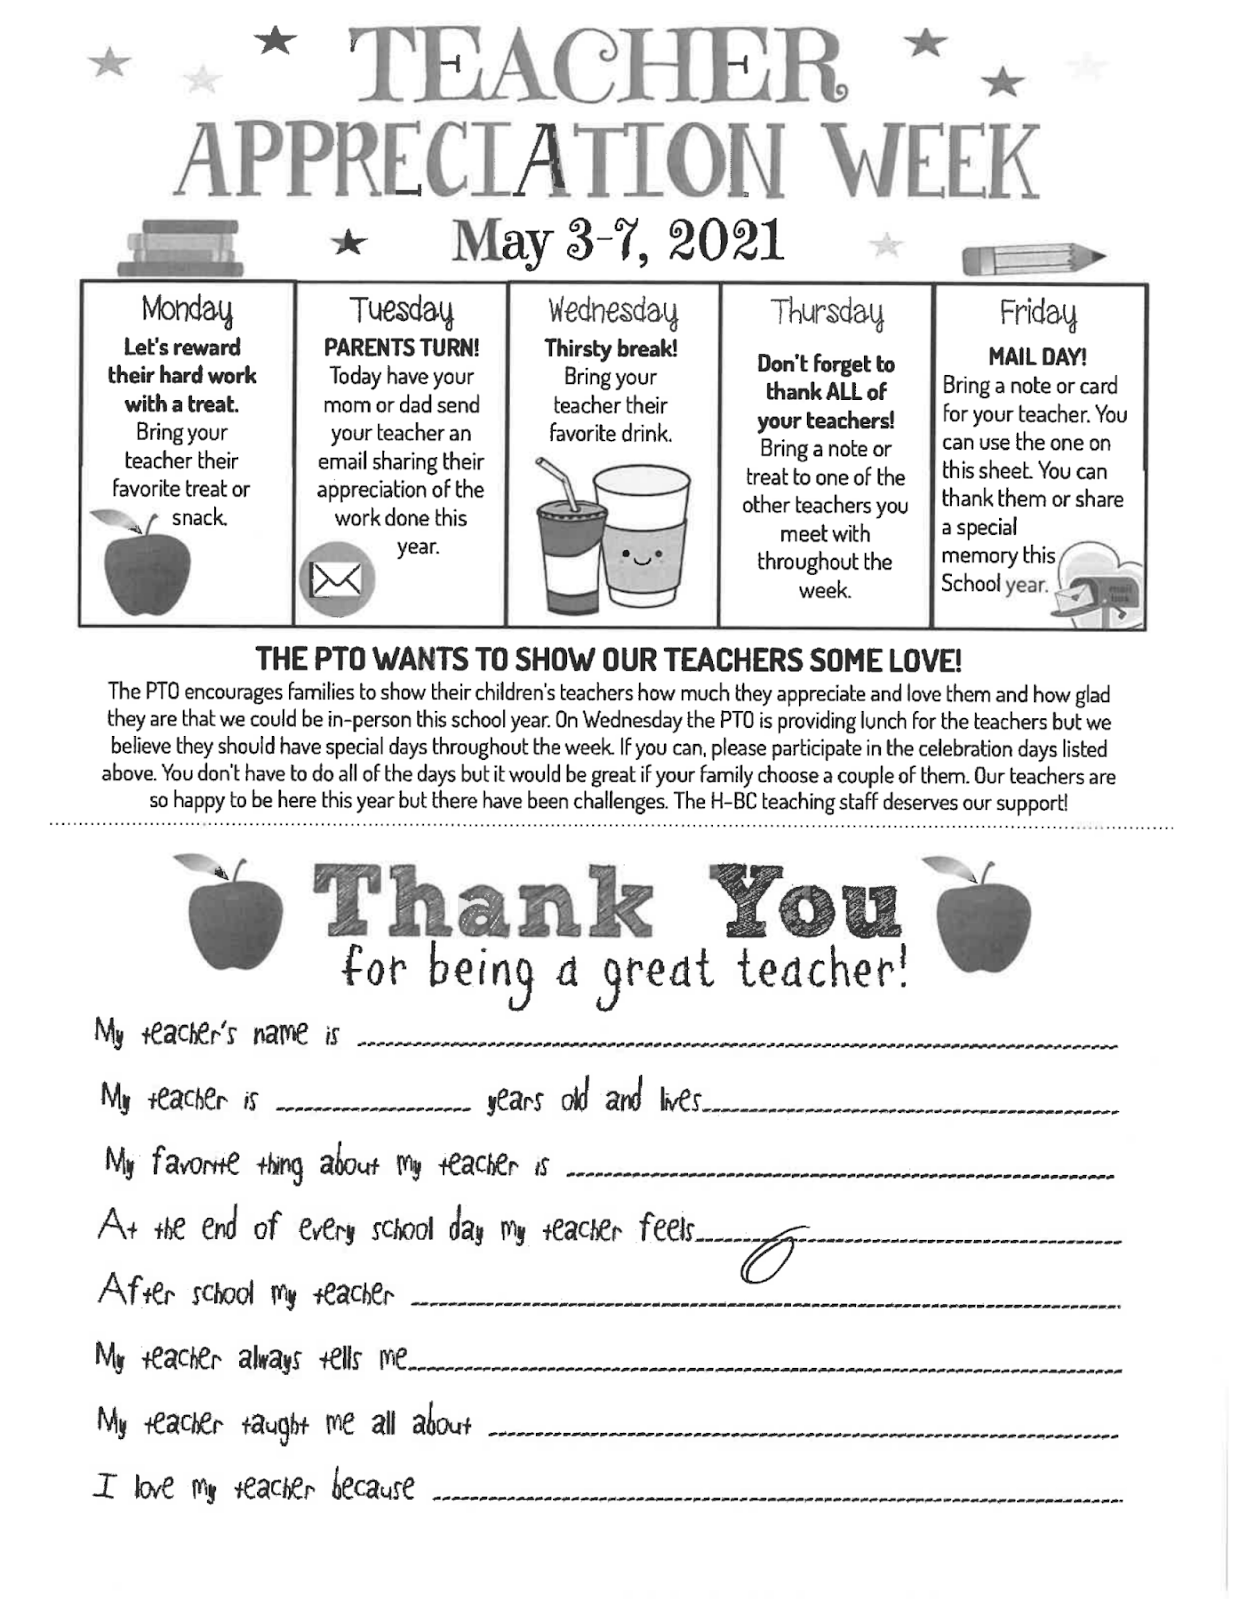 TEACHER
APPRECIATION WEEK
May 3-7, 2021
Monday
Let's reward
their hard work
with a treat.
Bring your
teacher their
favorite treat or
snack.
Tuesday
PARENTS TURN!
Today have your
mom or dad send
your teacher an
email sharing their
appreciation of the
work done this
year.
Wednesday
Thirsty break!
Bring your
teacher their
favorite drink.
Thursday
Don't forget to
thank ALL of
your teachers!
Bring a note or
treat to one of the
other teachers you
meet with
throughout the
week.
Friday
MAIL DAY!
Bring a note or card
for your teacher. You
can use the one on
this sheet. You can
thank them or share
a special
memory this
School year.
THE PTO WANTS TO SHOW OUR TEACHERS SOME LOVE!
The PTO encourages families to show their children's teachers how much they appreciate and love them and how glad
they are that we could be in-person this school year. On Wednesday the PTO is providing lunch for the teachers but we
believe they should have special days throughout the week. If you can, please participate in the celebration days listed
above. You don't have to do all of the days but it would be great if your family choose a couple of them. Our teachers are
so happy to be here this year but there have been challenges. The H-BC teaching staff deserves our support!
Thank You
for being a great teacher!
My teacher's name is
My teacher is years old and lives
My favorite thing about my teacher is
At the end of every school day my teacher feels
After school my teacher
My teacher always tells me
My teacher taught me all about
I love my teacher because